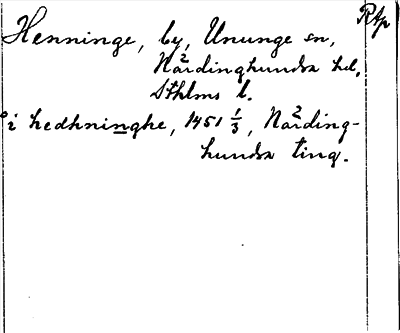 Rtp
Henninge, by, Ununge sn,
Närdinghundra hd,
Sthlms l.
i hedhninghe, 1451 1/3, Närding-
hundra ting.